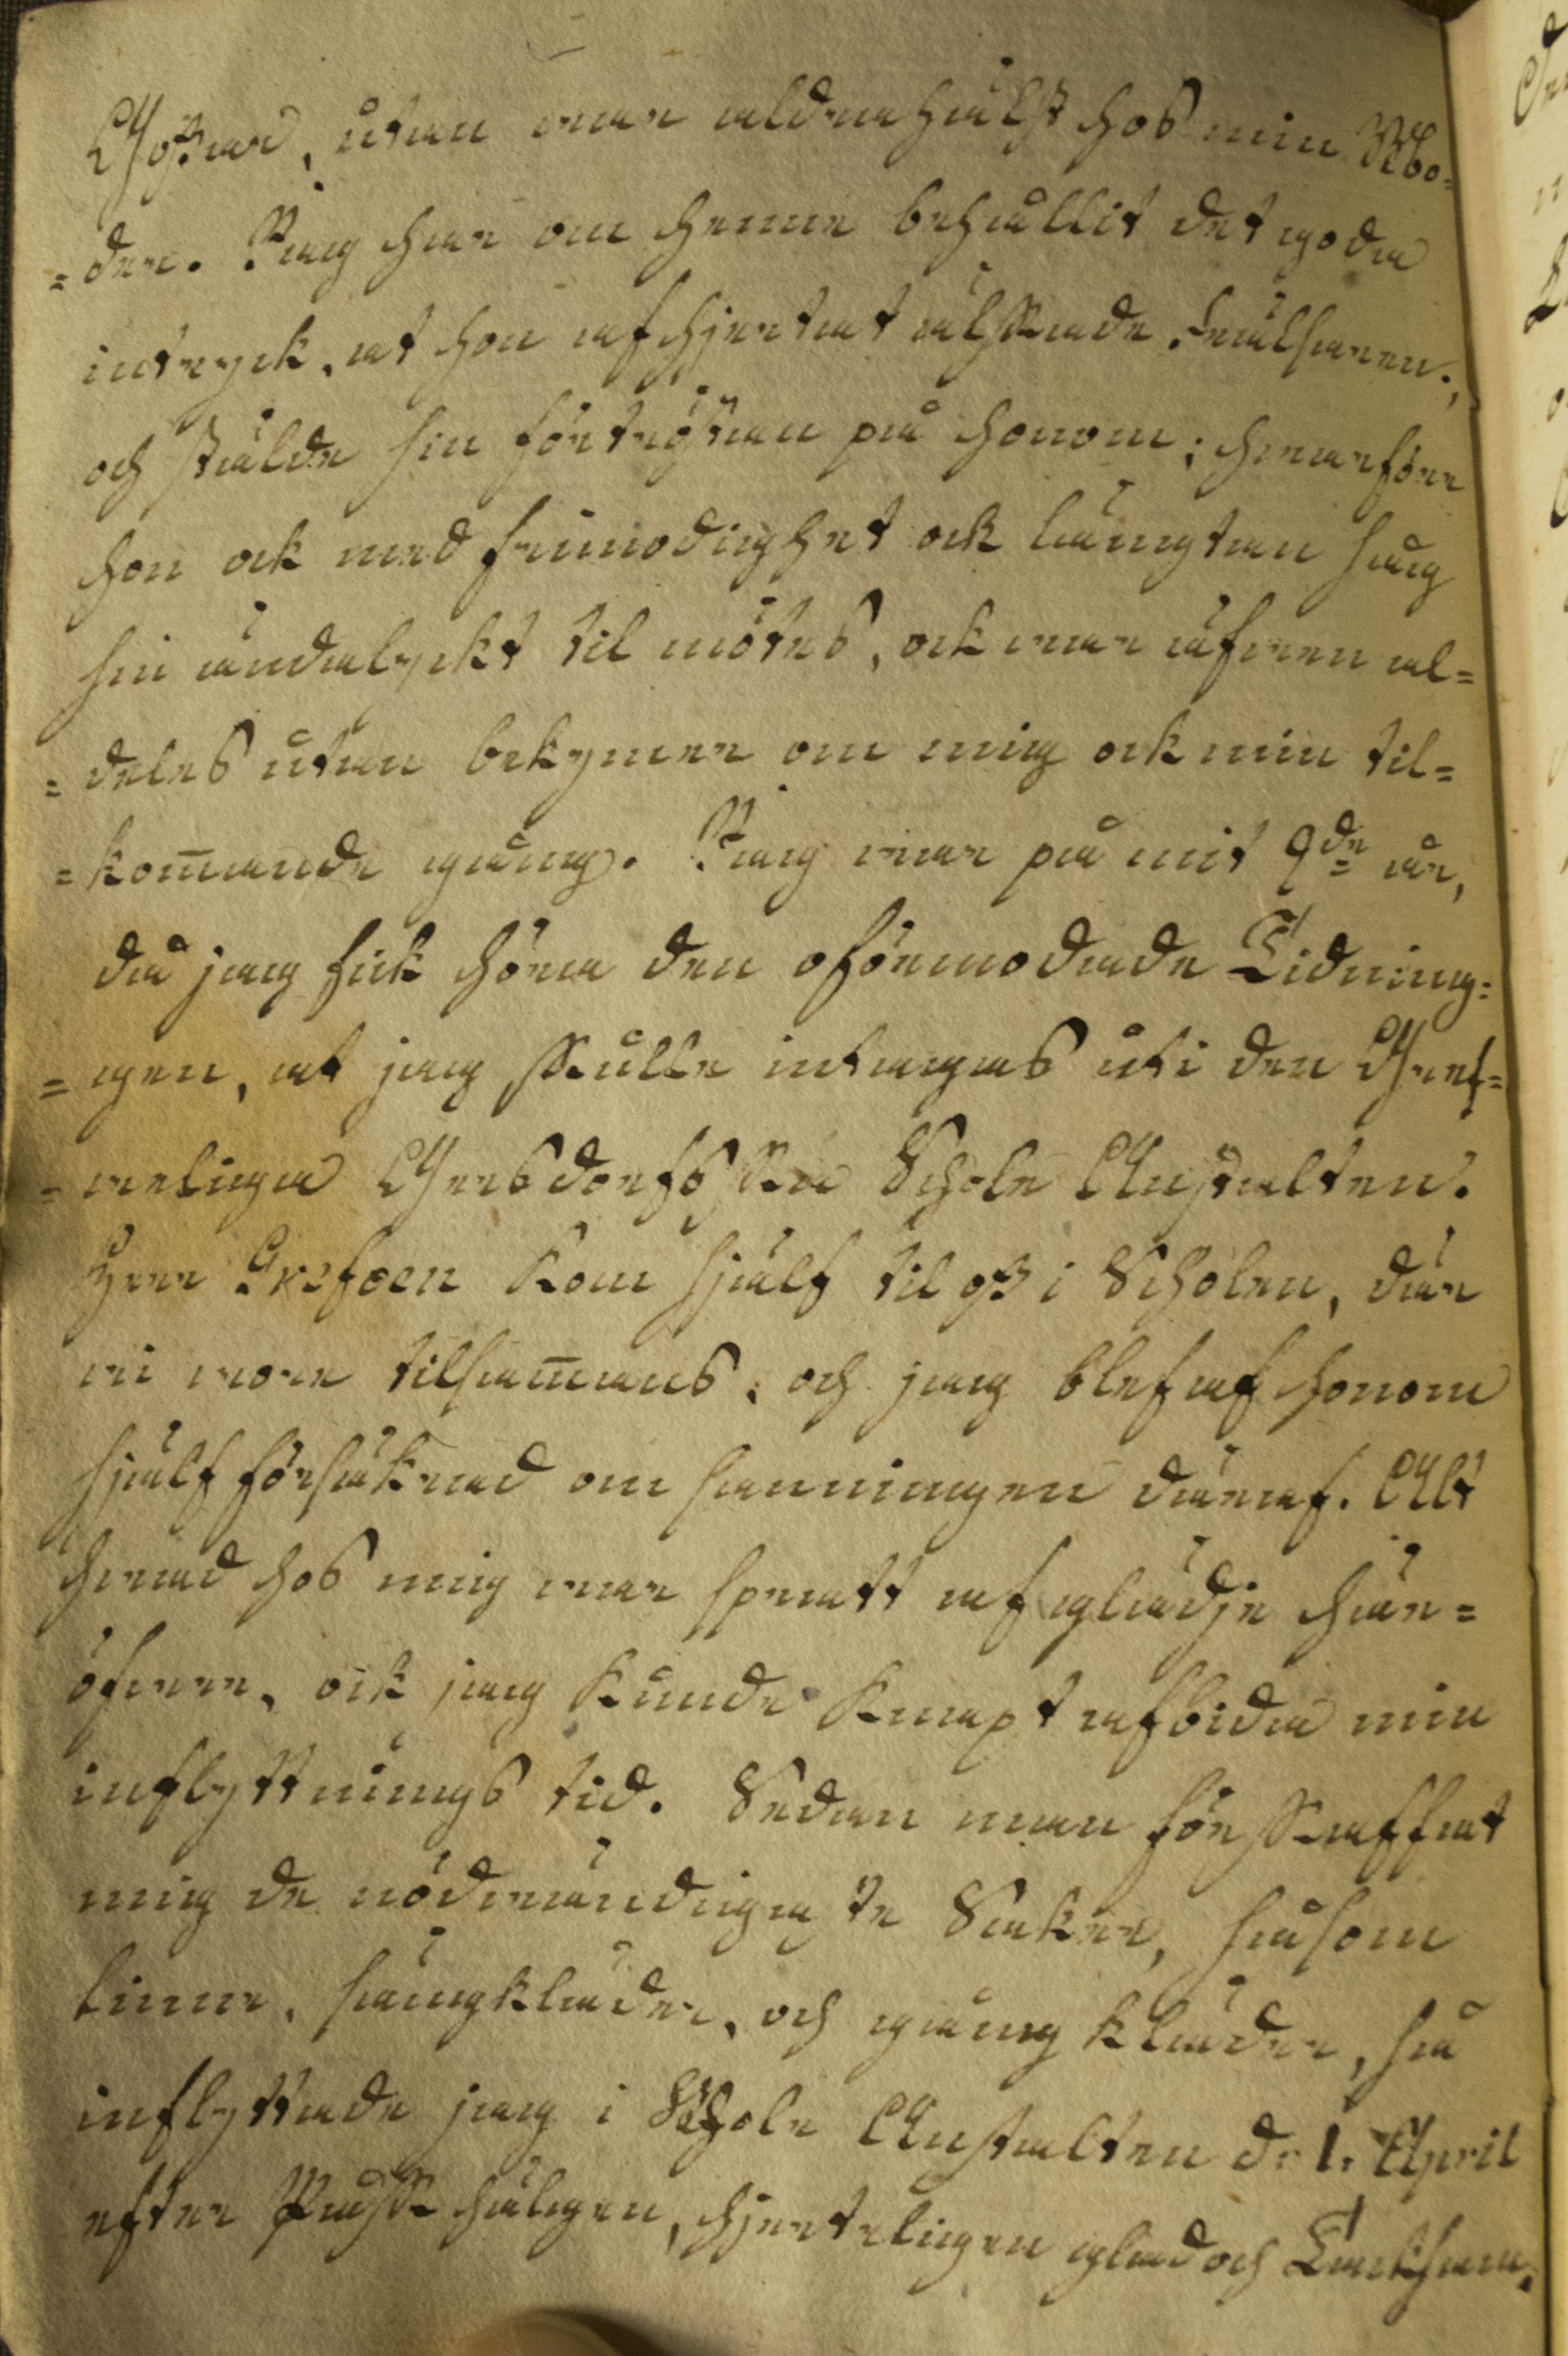 Goßar, utan war aldrahälst hos min Mo-
=der. Jag har om henne behållit det goda
intryck, at hon af hjertat älskade Frälsaren,
och stälde sin förtröstan på honom; hwarföre
hon ock med frimodighet ock längtan såg
sin ändalyckt til mötes, ock war äfwen al=
=deles utan bekymer om mig ock min til=
=kom̅ande gång. Jag war på mit 9de år,
då jag fick höra den oförmodade Tidning=
=gen, at jag skulle intagas uti den Gref=
=weliga Gersdorfska Schole Anstalten.
Herr Grefwen kom sjelf til oß i Scholen, där
wi wore tilsam̅ans, och jag blef af honom
sjelf försäkrad om sanningen däraf. Alt
hwad hos mig war spratt af glädje här=
öfwer, ock jag kunde knapt afbida min
inflyttnings tid. Sedan man förskaffat
mig de nödwändigaste Saker, såsom
linne, sängkläder, och gång kläder, så
inflyttade jag i Schole Anstalten d: 1: April
efter Påsk hälgen, hjerteligen glad och Tacksam,